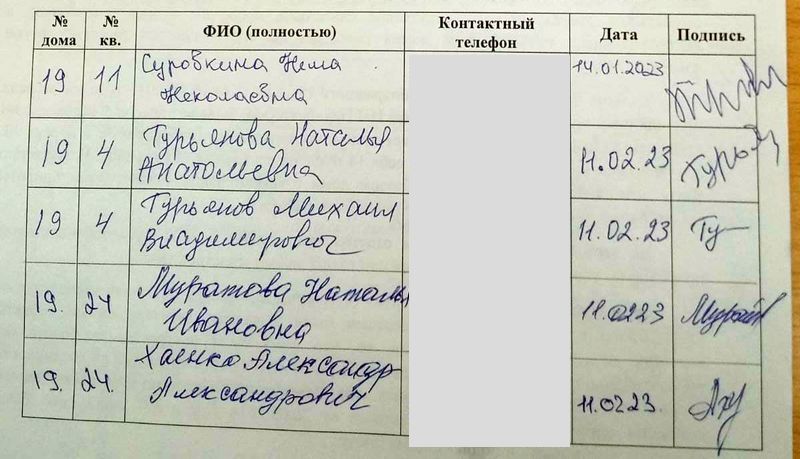 № дома № кв. ФИО (полностью) Контактный телефон Дата Подпись
19 11 Суровкина Нина 14.01.2023
Николаевна
19 4 Гурьянова Наталья 11.02.23 Гурья
Анатольевна
19 4 Гурьянов Михаил 11.02.23 Гу
Владимирович
19. 24 Муратова Наталья 11.0223 Мурат
Ивановна
19. 24. Хаенко Александр 11.0223.
Александрович